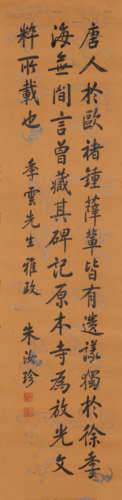 唐人於歐褚鍾薛輩皆有遺議獨於徐季
海無間言曾藏其碑記原本寺為放光文
粹所載也
季雲先生雅政
朱汝珍